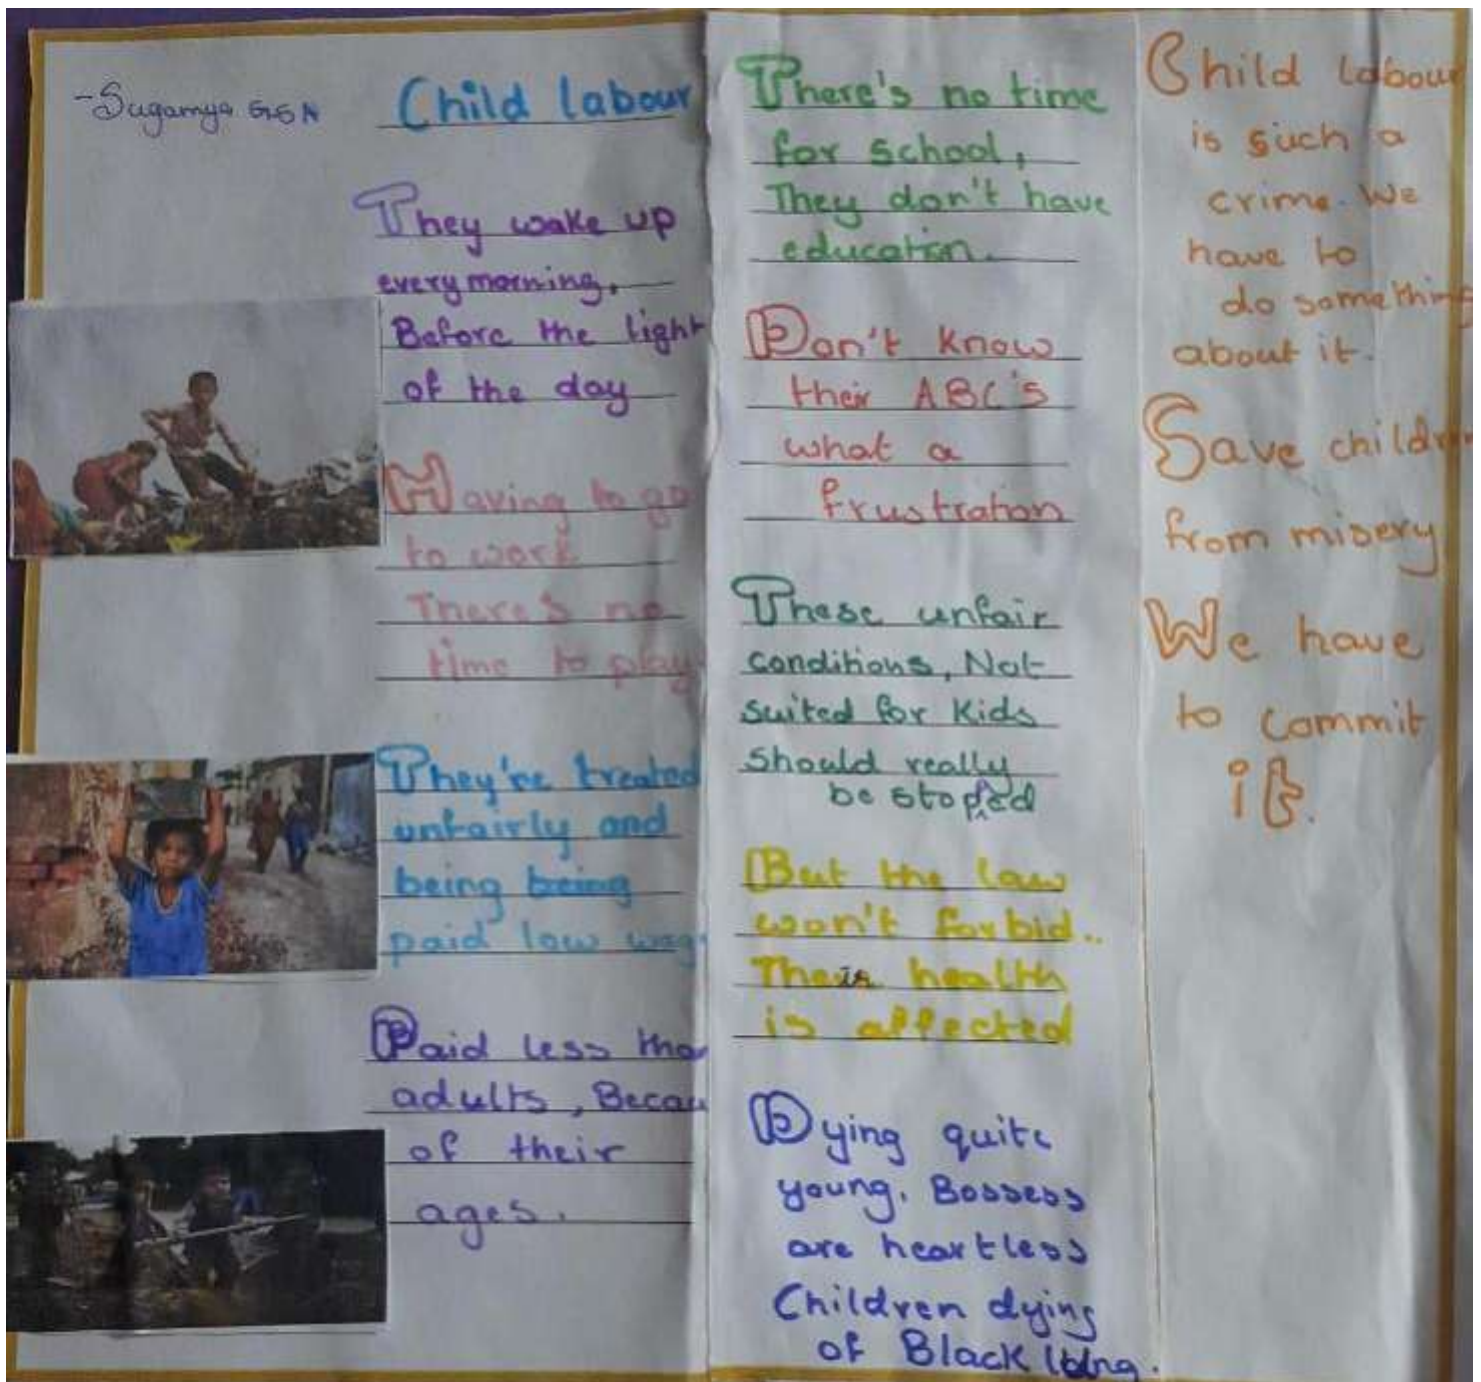 -Sugamya G5 A
Child labour
They wake up
every morning,
Before the light
of the day
Having to go
to work
There's no
time to play
They're treated
unfairly and
being being
paid low wag
Paid less tha
adults, Becau
of their
ages.
There's no time
for school,
They don't have
education.
Don't know
their ABC's
what a
frustration
These unfair
conditions, Not
suited for Kids
should really
be stopped
But the law
won't forbid..
Their health
is affected
Dying quite
young. Bossess
are heartless
Children dying
of Black lung.
Child labour
is such a
crime. We
have to
do something
about it.
Save children
from misery
We have
to commit
it.